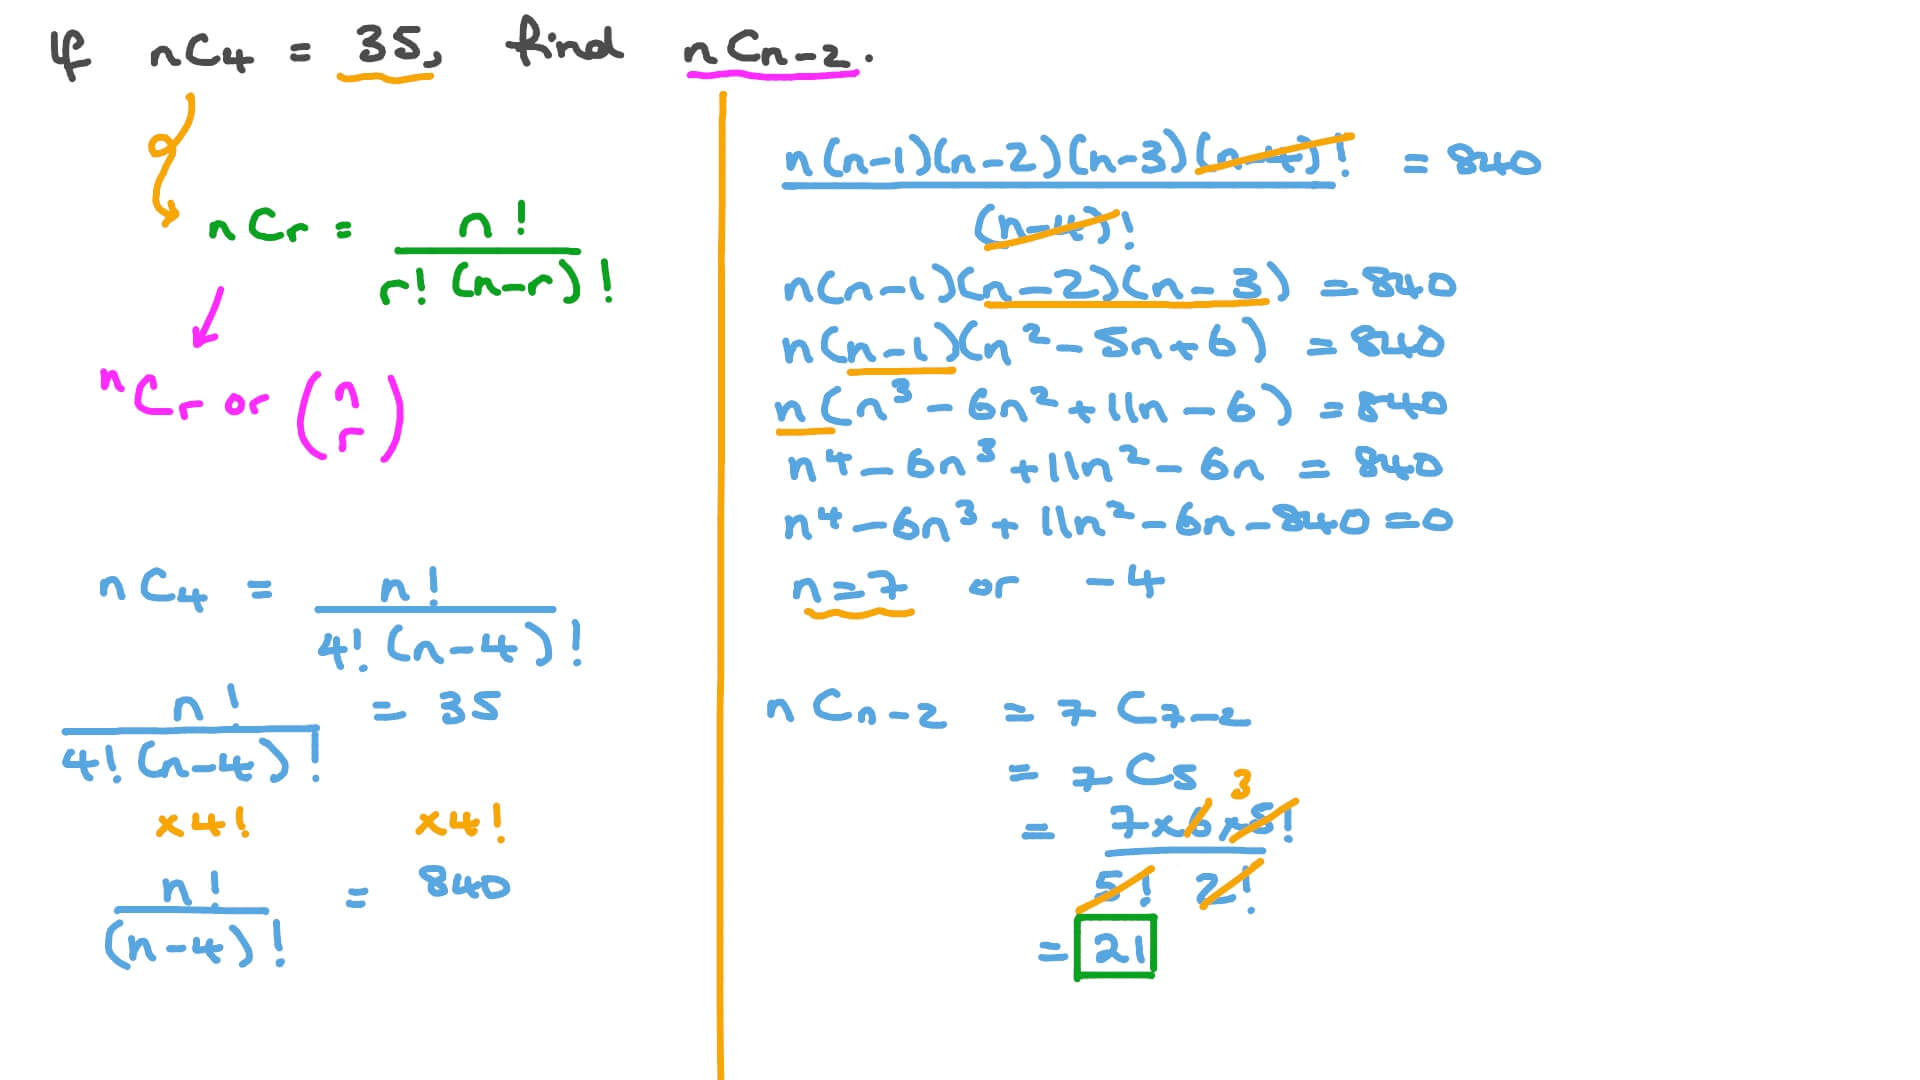 If nC4 = 35, find nCn-2.
nCr = n! / r! (n-r)!
nCr or (n r)
nC4 = n! / 4! (n-4)!
n! / 4! (n-4)! = 35
×4! ×4!
n! / (n-4)! = 840
n(n-1)(n-2)(n-3)(n-4)! / (n-4)! = 840
n(n-1)(n-2)(n-3) = 840
n(n-1)(n²-5n+6) = 840
n(n³-6n²+11n-6) = 840
n⁴-6n³+11n²-6n = 840
n⁴-6n³+11n²-6n-840=0
n=7 or -4
nCn-2 = 7C7-2
= 7C5
3
= 7×6×5! / 5! 2!
= 21